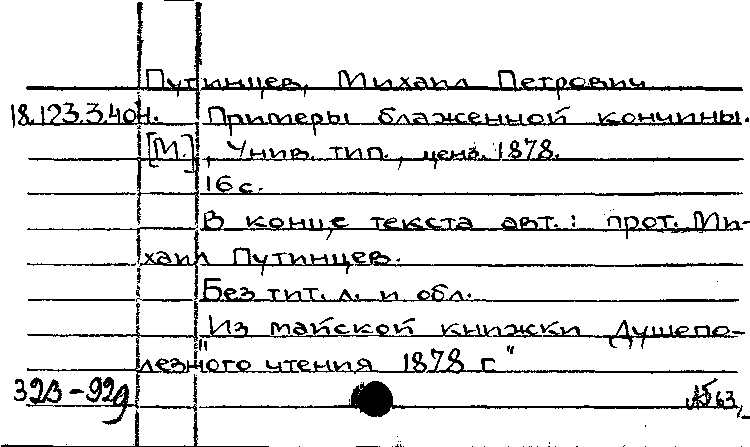 Путинцев, Михаил Петрович
18.123.3.404. Примеры блаженной кончины.
[М.], Унив. тип., ценз. 1878.
16 с.
В конце текста авт.: прот. Ми-
хаил Путинцев.
Без тит. л. и обл.
"Из майской книжки Душепо-
лезного чтения 1878 г."
32в-92д 63